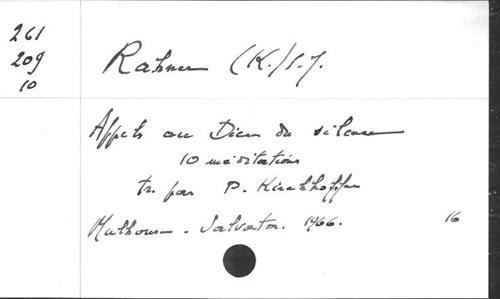 261
209
10
Rahner (K.) s.j.
Appels au Dieu du silence
10 méditations
tr. par P. Kirchhoffer
Mulhouse - Salvator. 1966. 16